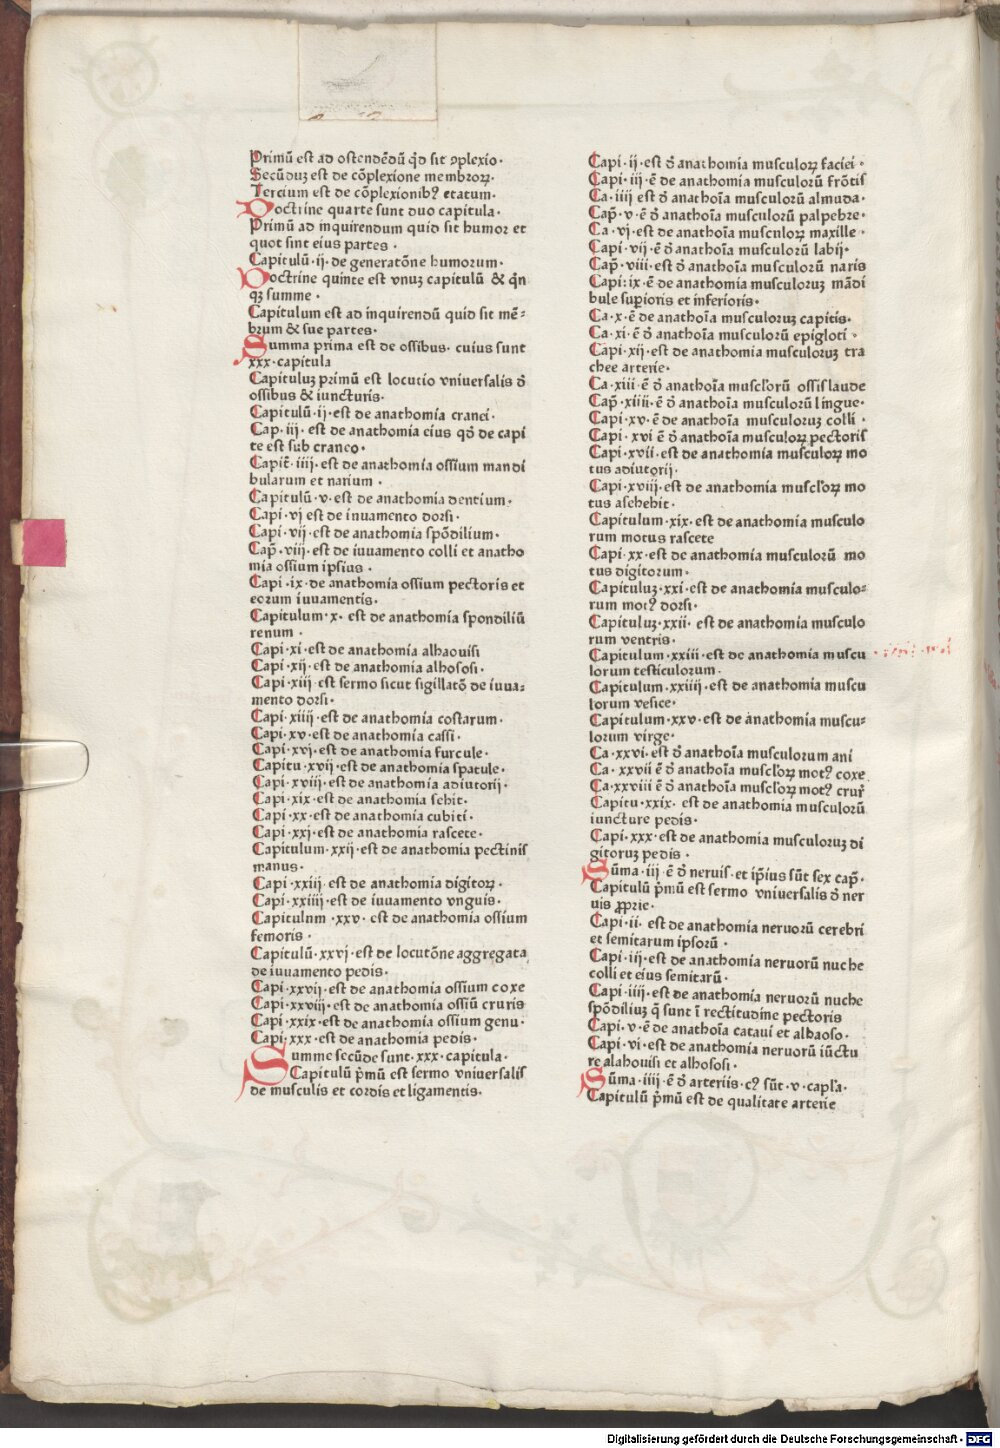 Primū est ad ostendēdū qd̄ sit ꝯplexio·
Secūduꝫ est de cōplexione membroꝝ·
Tercium est de cōplexionibꝰ etatum·
Doctrine quarte sunt duo capitula·
Primū ad inquirendum quid sit humor et
quot sint eius partes·
Capitulū·ij·de generatōne humorum·
Doctrine quinte est vnuꝫ capitulū & qn̄
qꝫ summe·
Capitulum est ad inquirendū quid sit mē⸗
brum & sue partes·
Summa prima est de ossibus· cuius sunt
xxx·capitula
Capituluꝫ primū est locutio vniuersalis d̄
ossibus & iuncturis·
Capitulū·ij·est de anathomia cranei·
Cap·iij·est de anathomia eius qd̄ de capi
te est sub craneo·
Capit̄·iiij·est de anathomia ossium mandi
bularum et narium·
Capitulū·v·est de anathomia dentium·
Capi·vj est de iuuamento dorsi·
Capi·vij·est de anathomia spōdilium·
Cap̄·viij·est de iuuamento colli et anatho
mia ossium ipsius·
Capi·ix·de anathomia ossium pectoris et
eorum iuuamentis·
Capitulum·x·est de anathomia spondiliū
renum·
Capi·xi·est de anathomia alhaouisi
Capi·xij·est de anathomia alhosos·
Capi·xiij est sermo sicut sigillatō de iuua⸗
mento dorsi·
Capi·xiiij·est de anathomia costarum·
Capi·xv·est de anathomia cassi·
Capi·xvj·est de anathomia furcule·
Capitu·xvij·est de anathomia spatule·
Capi·xviij·est de anathomia adiutorij·
Capi·xix·est de anathomia sehit·
Capi·xx·est de anathomia cubiti·
Capi·xxj·est de anathomia rascete·
Capitulum·xxij·est de anathomia pectinis
manus·
Capi·xxiij·est de anathomia digitoꝝ·
Capi·xxiiij·est de iuuamento vnguis·
Capitulnm·xxv·est de anathomia ossium
femoris·
Capitulū·xxvj·est de locutōne aggregata
de iuuamento pedis·
Capi·xxvij·est de anathomia ossium coxe
Capi·xxviij·est de anathomia ossiū cruris
Capi·xxix·est de anathomia ossium genu·
Capi·xxx·est de anathomia pedis·
Summe secūde sunt·xxx·capitula·
Capitulū pmū est sermo vniuersalis
de musculis et cordis et ligamentis·
Capi·ij·est d̄ anathomia musculoꝝ faciei·
Capi·iij·ē de anathomia musculorū frōtis
Ca·iiij est d̄ anathoīa musculorū almuda·
Cap̄·v·ē d̄ anathoīa musculorū palpebre·
Ca·vj·est de anathoīa muscnloꝝ maxille·
Capi·vij·ē d̄ anathoīa musculorū labij·
Cap̄·viii·est d̄ anathoīa musculorū naris
Capi:ix·ē de anathomia musculoruꝫ mādi
bule supioris et inferioris·
Ca·x·ē de anathoīa musculoruꝫ capitis·
Ca·xi·ē d̄ anathoīa musculorū epigloti·
Capi·xij·est de anathomia musculoruꝫ tra
chee arterie·
Ca·xiii·ē d̄ anathoīa musclorū ossis laude
Cap̄·xiiii·ē d̄ anathoīa musculorū lingue·
Capi·xv·ē de anathoīa musculoruꝫ colli·
Capi·xvi ē d̄ anathoīa musculoꝝ pectoris
Capi·xvii·est de anathomia musculoꝝ mo
tus adiutorij·
Capi·xviij·est de anathomia muscloꝝ mo
tus asehehit·
Capitulum·xix·est de anathomia musculo
rum motus rascete
Capi·xx·est de anathomia musculorū mo
tus digitorum·
Capituluꝫ·xxi·est de anathomia musculo⸗
rum motꝰ dorsi·
Capituluꝫ·xxii·est de anathomia musculo
rum ventris·
Capitulum·xxiii·est de anathomia muscu
lorum testiculorum·
Capitulum·xxiiij·est de anathomia muscu
lorum vesice·
Capitulum·xxv·est de anathomia muscu⸗
lorum virge·
Ca·xxvi·est d̄ anathoīa musculorum ani
Ca·xxvii ē d̄ anathoīa muscloꝝ motꝰ coxe
Ca·xxviii ē d̄ anathoīa muscloꝝ motꝰ crur̄
Capitu·xxix·est de anathomia musculorū
iuncture pedis·
Capi·xxx·est de anathomia musculoruꝫ di
gitoruꝫ pedis·
Sūma·iij·ē d̄ neruis·et ip̄ius sūt sex cap̄·
Capitulū pmū est sermo vniuersalis d̄ ner
uis ꝓprie·
Capi·ii·est de anathomia neruorū cerebri
et semitarum ipsorū·
Capi·iij·est de anathomia neruorū nuche
colli et eius semitarū·
Capi·iiij·est de anathomia neruorū nuche
spōdiliuꝫ q̄ sunt ī rectitudine pectoris
Capi·v·ē de anathoīa cataui et alhaoso·
Capi·vi·est de anathomia neruorū iūctu
re alahouisi et alhosos·
Sūma·iiij·ē d̄ arteriis·cꝰ sūt·v·capla·
Capitulū pmū est de qualitate arterie
Digitalisierung gefördert durch die Deutsche Forschungsgemeinschaft - DFG